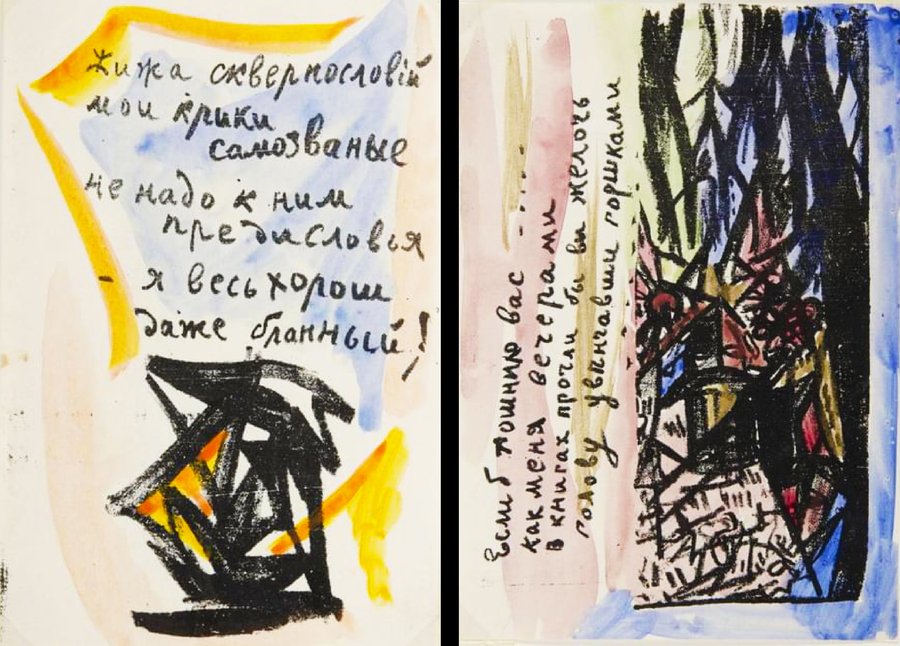 Жижа сквернословій
мои крики
самозваные
не надо к ним
предисловья
я весь хорош
даже бранный!
Еслиб тошнило вас
как меня вечерами
в книгах прочли бы вы желочь
голову увенчавши горшками